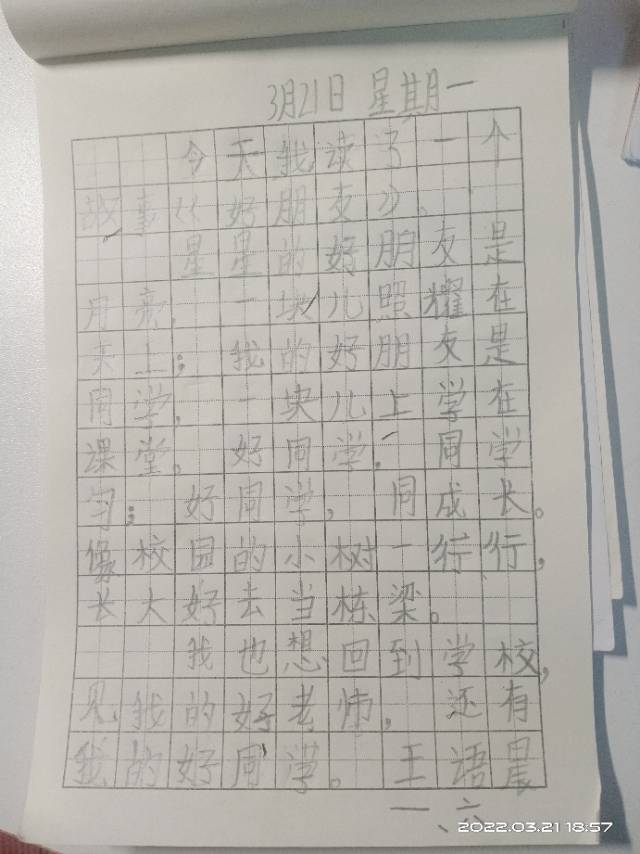 3月21日 星期一
今天我读了一个
故事《好朋友》。
星星的好朋友是
月亮,一块儿照耀在
天上;我的好朋友是
同学,一块儿上学在
课堂。好同学,同学
习;好同学,同成长。
像校园的小树一行行,
长大好去当栋梁。
我也想回到学校,
见我的好老师,还有
我的好同学。王语晨
一、六
2022.03.21 18:57